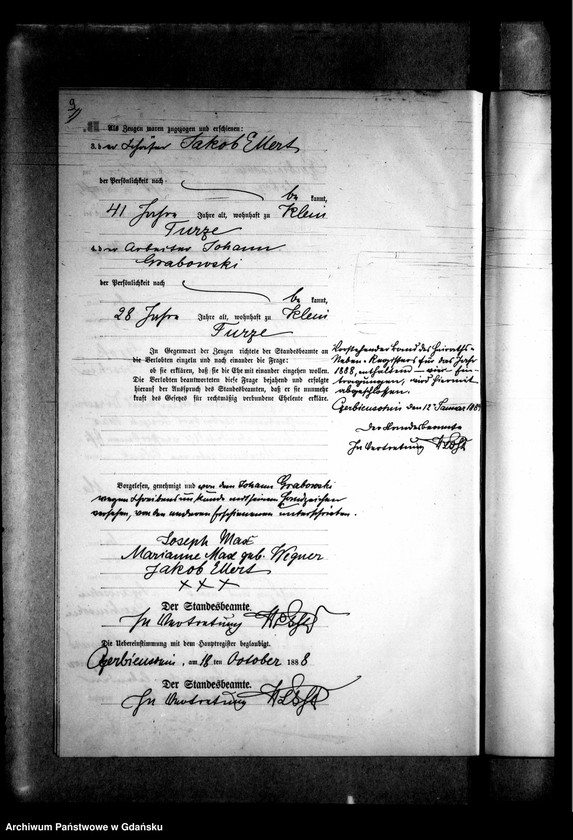 9
Als Zeugen waren zugezogen und erschienen:
3. der Schäfer Jakob Ellert
der Persönlichkeit nach
be kannt,
41 Jahre Jahre alt, wohnhaft zu Klein
Turze
4. der Arbeiter Johann
Grabowski
der Persönlichkeit nach
be kannt,
28 Jahre Jahre alt, wohnhaft zu Klein
Turze
In Gegenwart der Zeugen richtete der Standesbeamte an
die Verlobten einzeln und nach einander die Frage:
ob sie erklären, daß sie die Ehe mit einander eingehen wollen.
Die Verlobten beantworteten diese Frage bejahend und erfolgte
hierauf der Ausspruch des Standesbeamten, daß er sie nunmehr
kraft des Gesetzes für rechtmäßig verbundene Eheleute erkläre.
Vorstehender Band des Heiraths-
Neben-Registers für das Jahr
1888, enthaltend – vier Ein-
tragungen, wird hiermit
abgeschlossen.
Czerbienschin den 12 Januar 1889
Der Standesbeamte
In Vertretung
Vorgelesen, genehmigt und von dem Johann Grabowski
wegen Schreibensunkunde mit seinem Handzeichen
versehen, von den anderen Erschienenen unterschrieben.
Joseph Max
Marianne Max geb. Wegner
Jakob Ellert
× × ×
Der Standesbeamte.
In Vertretung
Die Uebereinstimmung mit dem Hauptregister beglaubigt.
Czerbienschin, am 18 ten October 1888
Der Standesbeamte.
In Vertretung
Archiwum Państwowe w Gdańsku